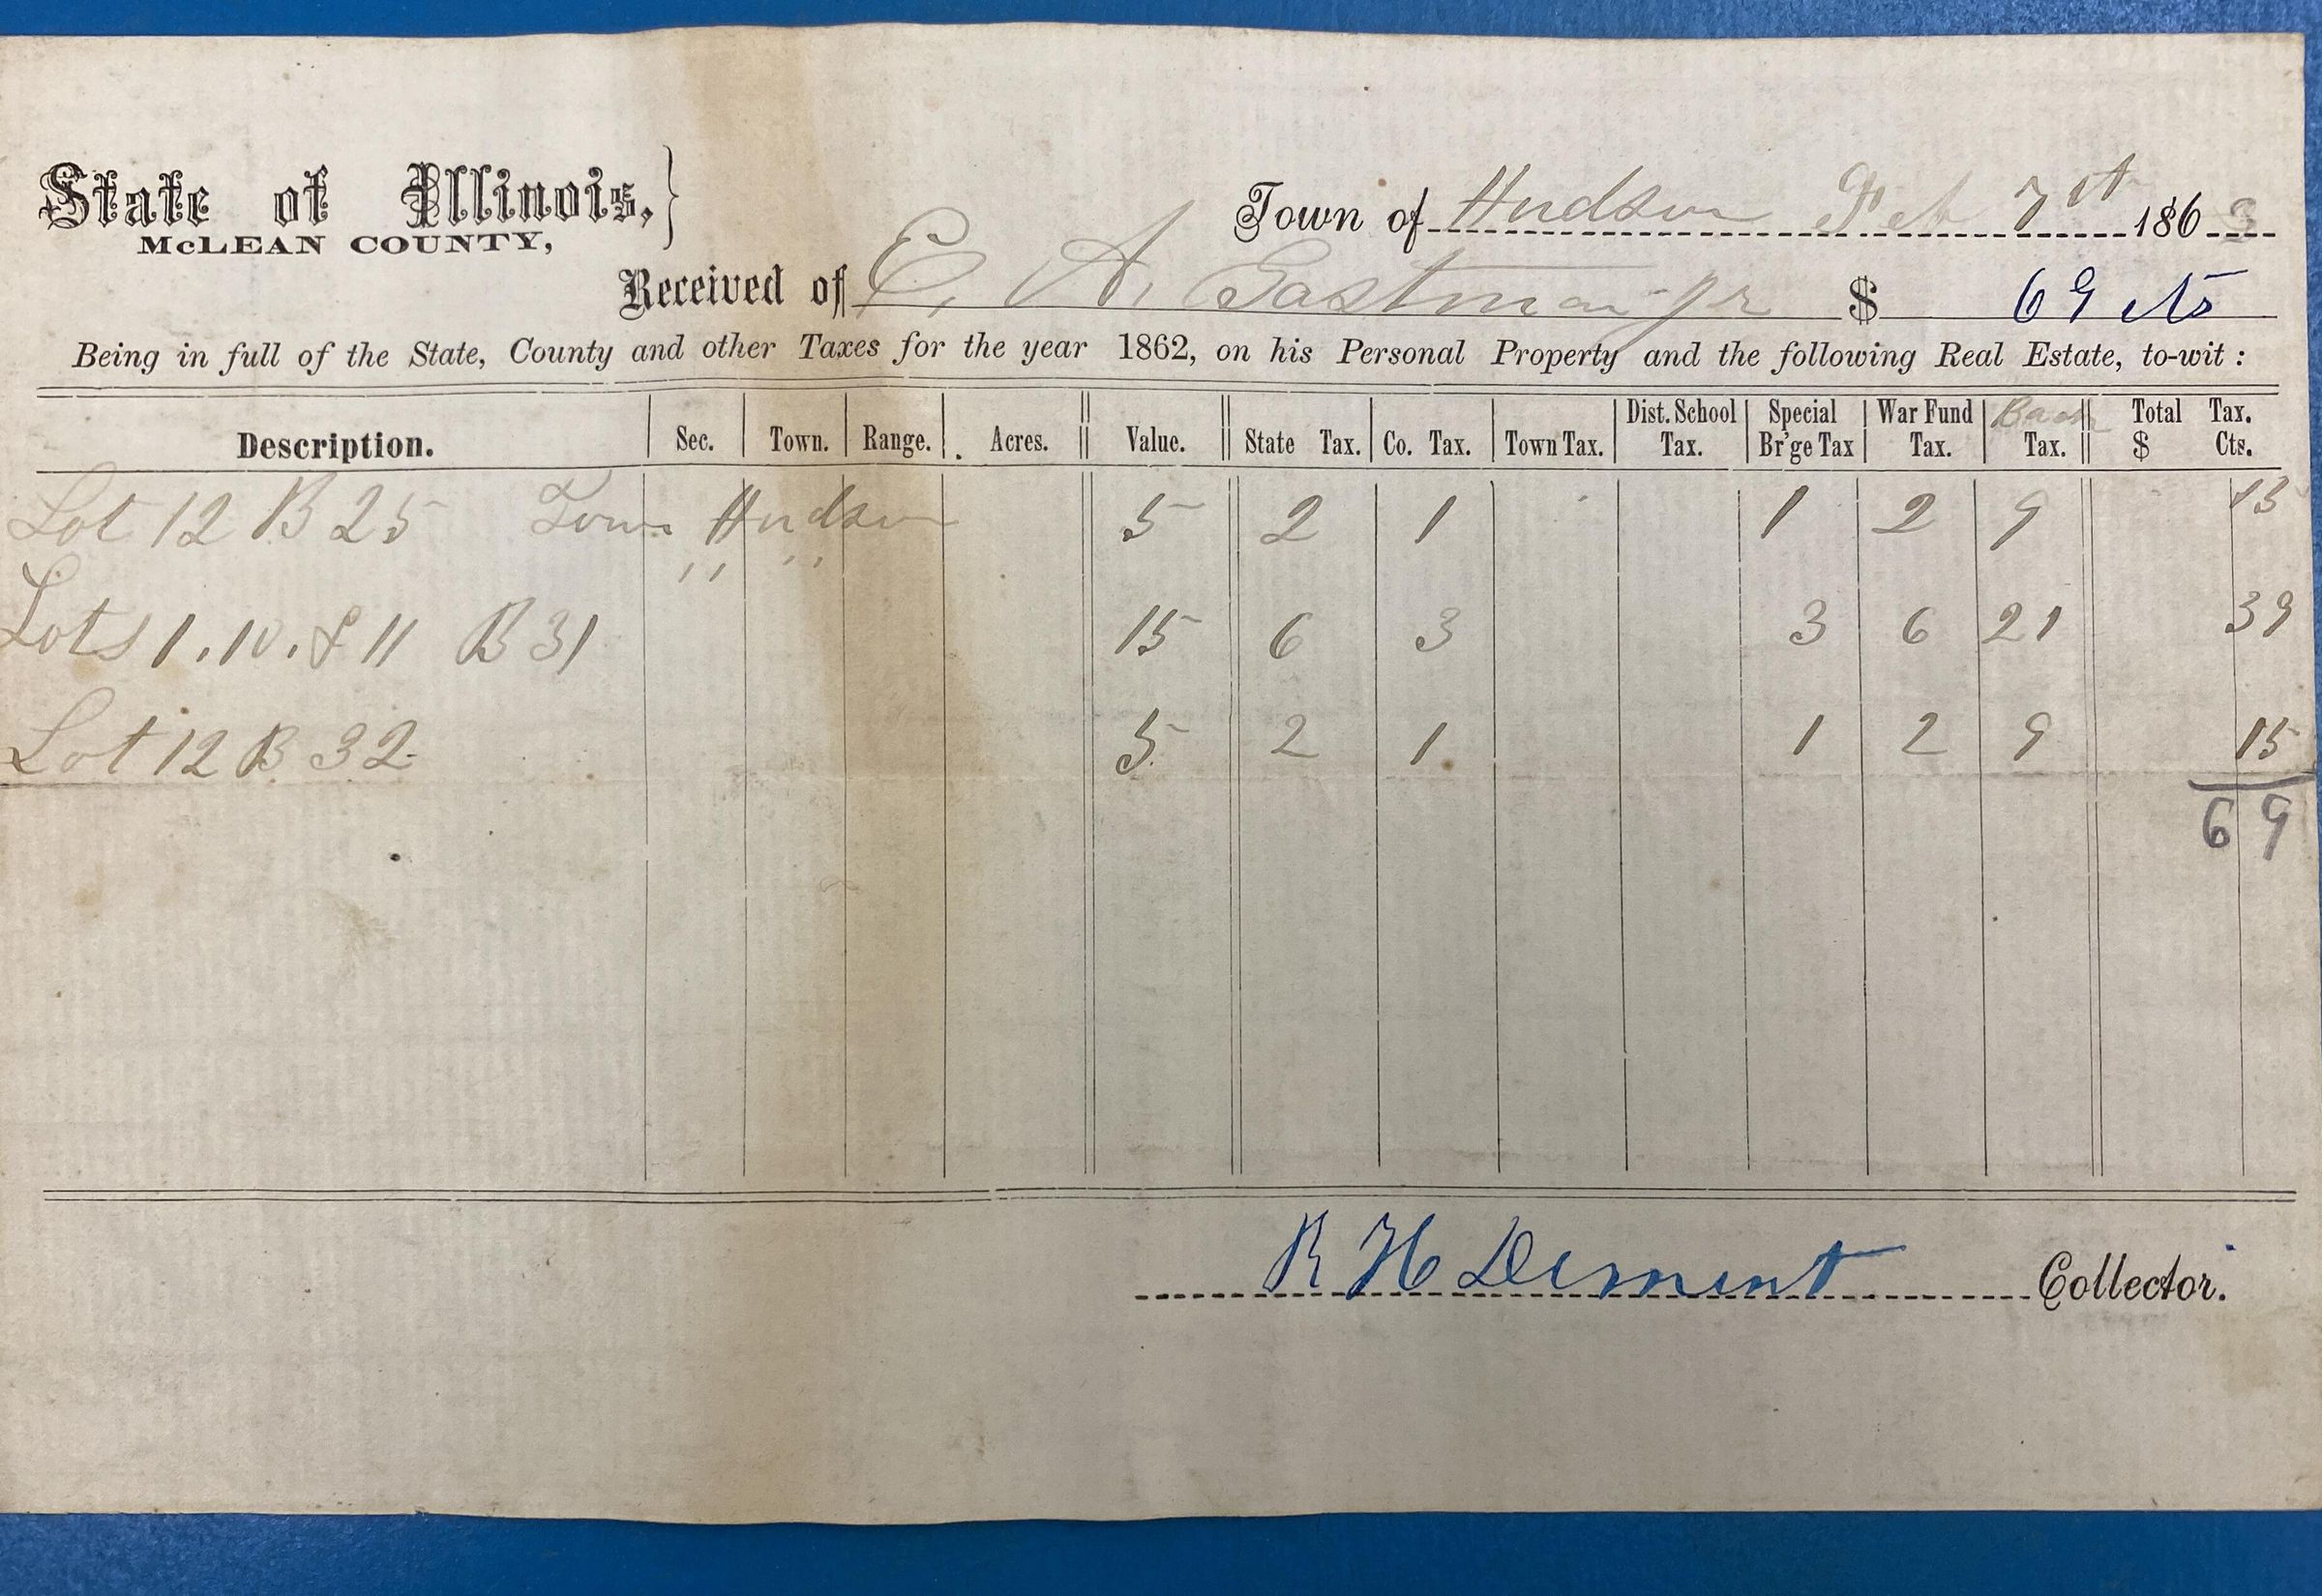 State of Illinois,}
McLEAN COUNTY,
Town of Hudson Feb 7st 1863
Received of E. A. Eastman Jr $ 69 cts
Being in full of the State, County and other Taxes for the year 1862, on his Personal Property and the following Real Estate, to-wit :
Description. Sec. Town. Range. Acres. Value. State Tax. Co. Tax. Town Tax. Dist. School Tax. Special Br'ge Tax War Fund Tax. Back Tax. Total Tax. $ Cts.
Lot 12 B 25 Town Hudson 5 2 1 1 2 9 15
" "
Lots 1. 10. & 11 B 31 15 6 3 3 6 21 39
Lot 12 B 32 5 2 1 1 2 9 15
69
R H Dement Collector.